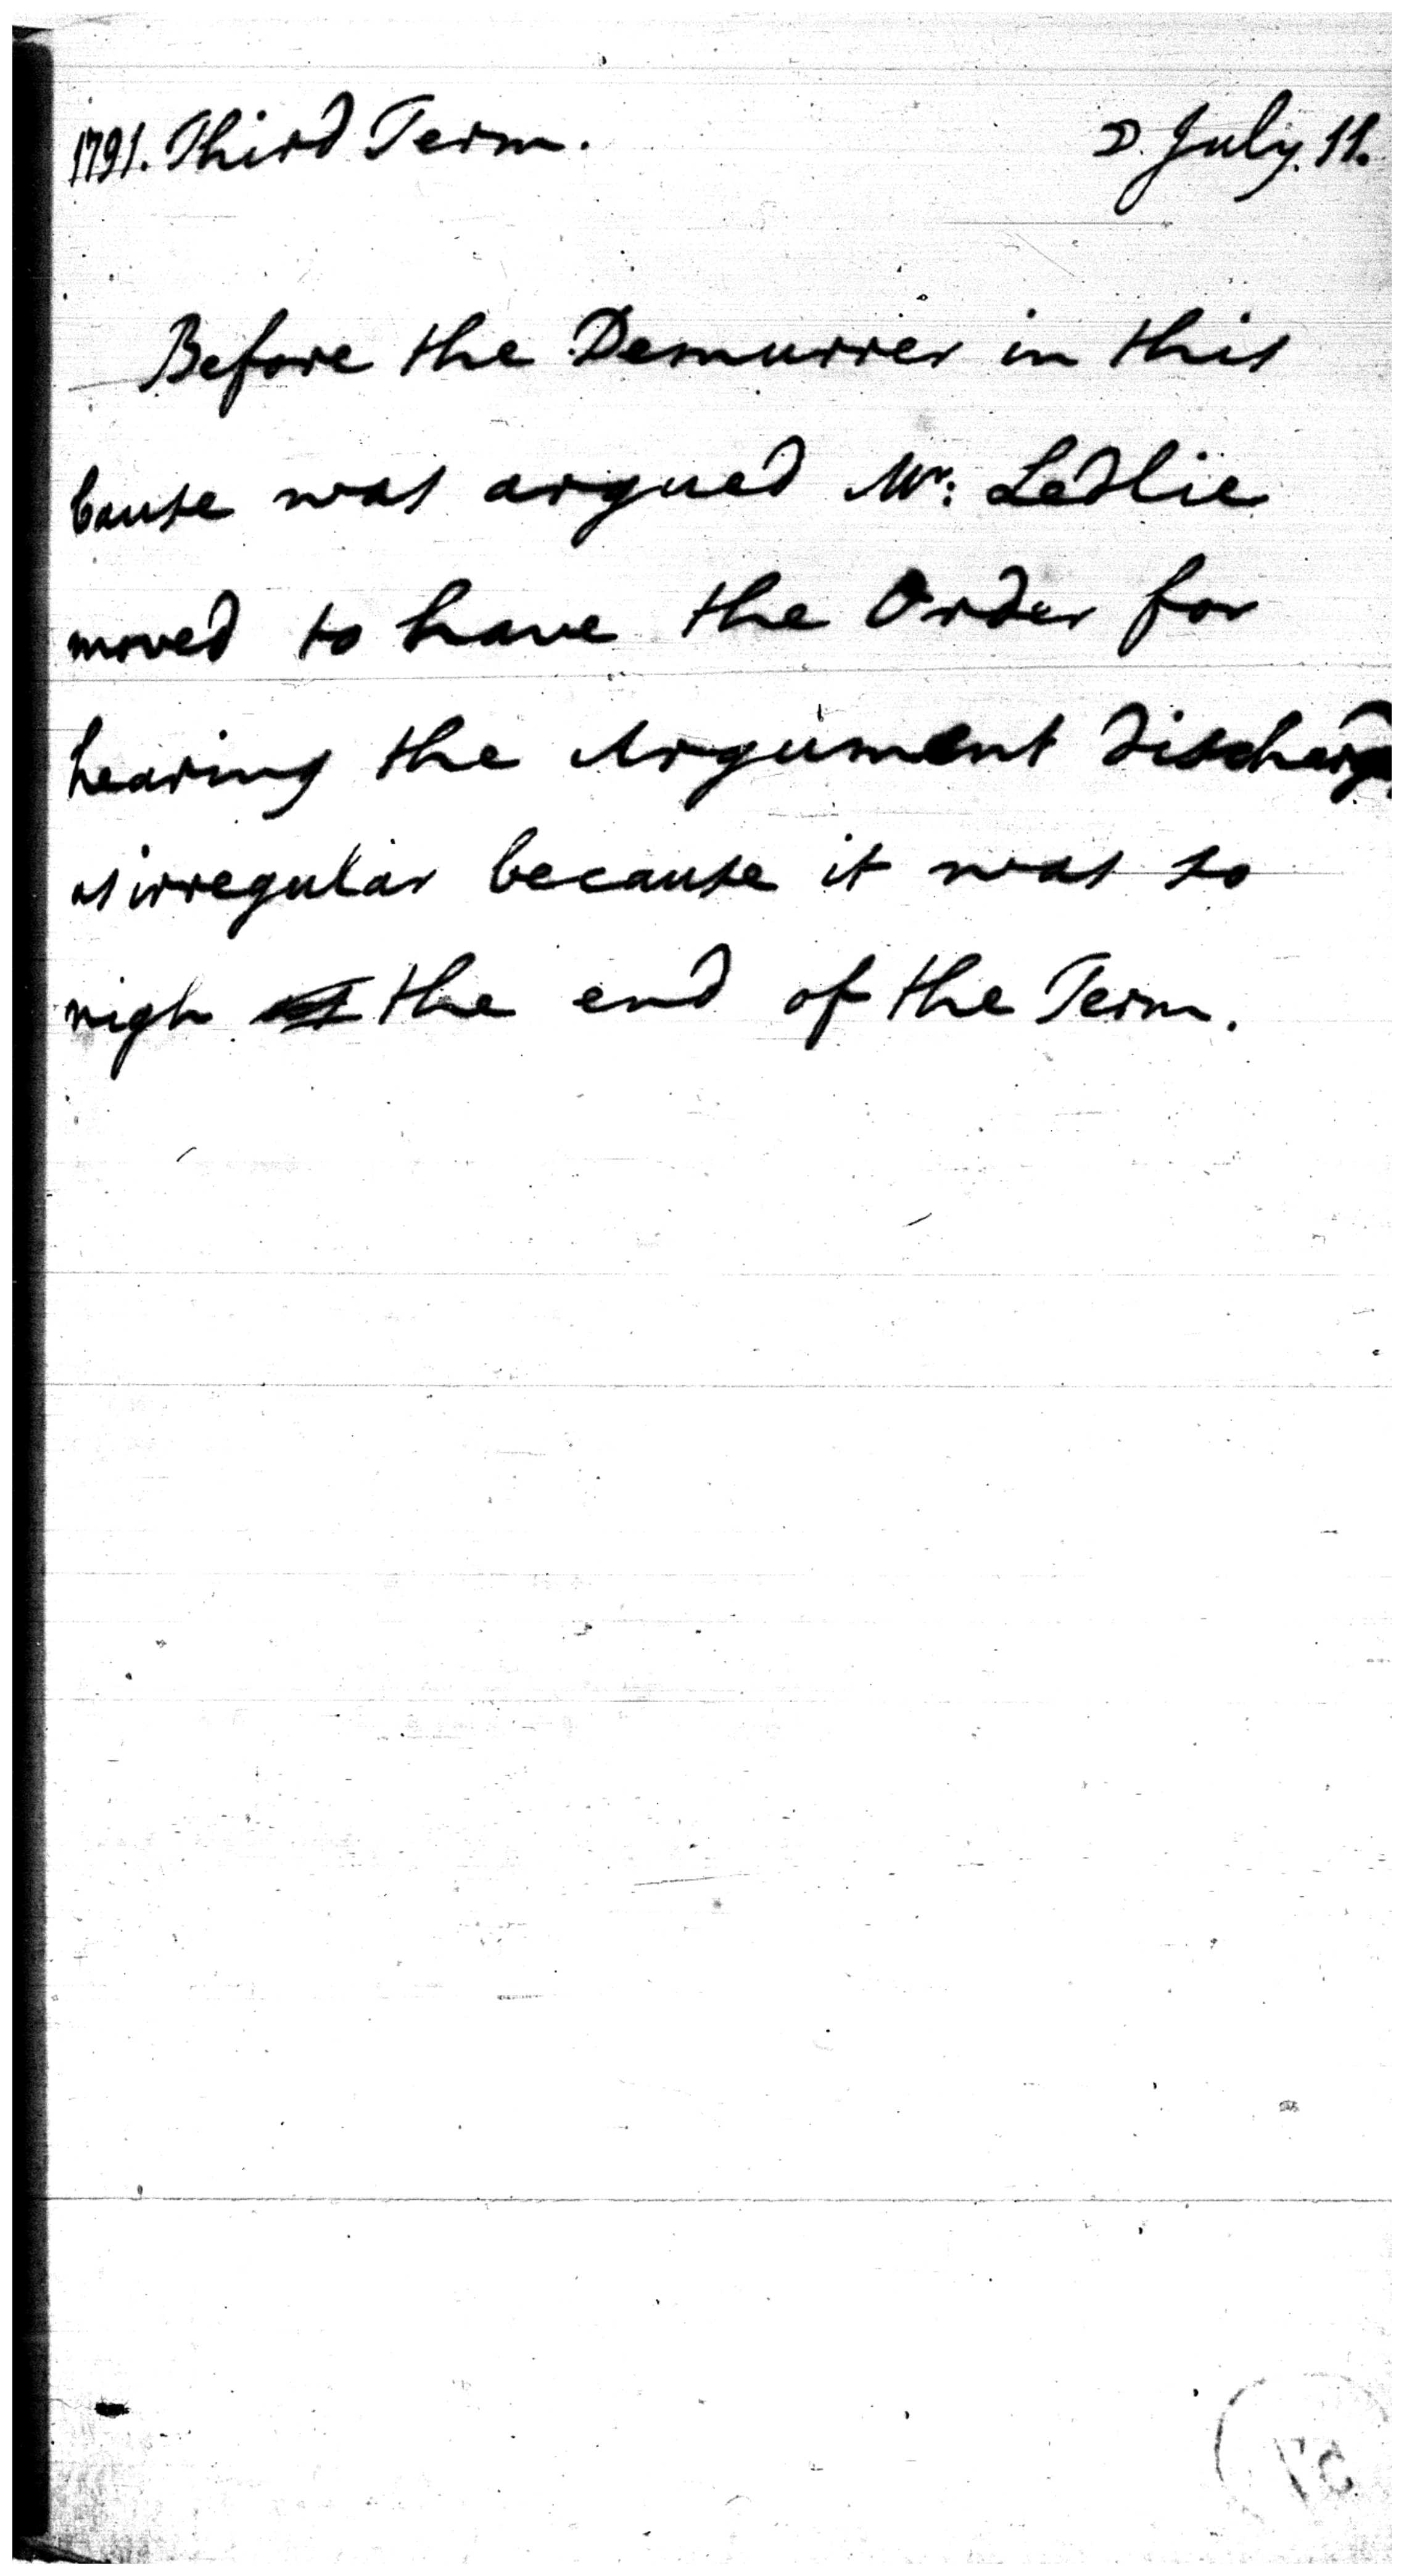 1791. Third Term. D. July. 11.
Before the Demurrer in this
Cause was argued Mr: Ledlie
moved to have the Order for
hearing the Argument discharg
as irregular because it was so
nigh the end of the Term.